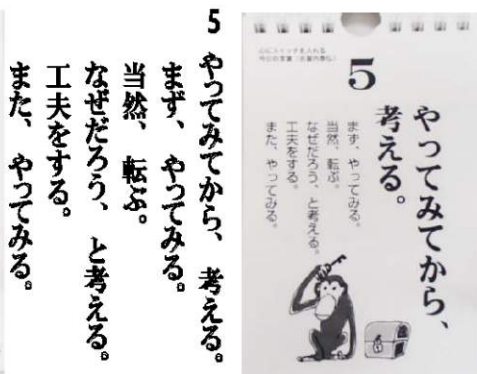 5
やってみてから、考える。
まず、やってみる。
当然、転ぶ。
なぜだろう、と考える。
工夫をする。
また、やってみる。
心にスイッチを入れる
5
やってみてから、
考える。
まず、やってみる。
当然、転ぶ。
なぜだろう、と考える。
工夫をする。
また、やってみる。